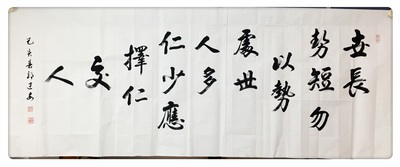 世長
势短勿
以勢
處世
人多
仁少應
擇仁
交
人
己亥春